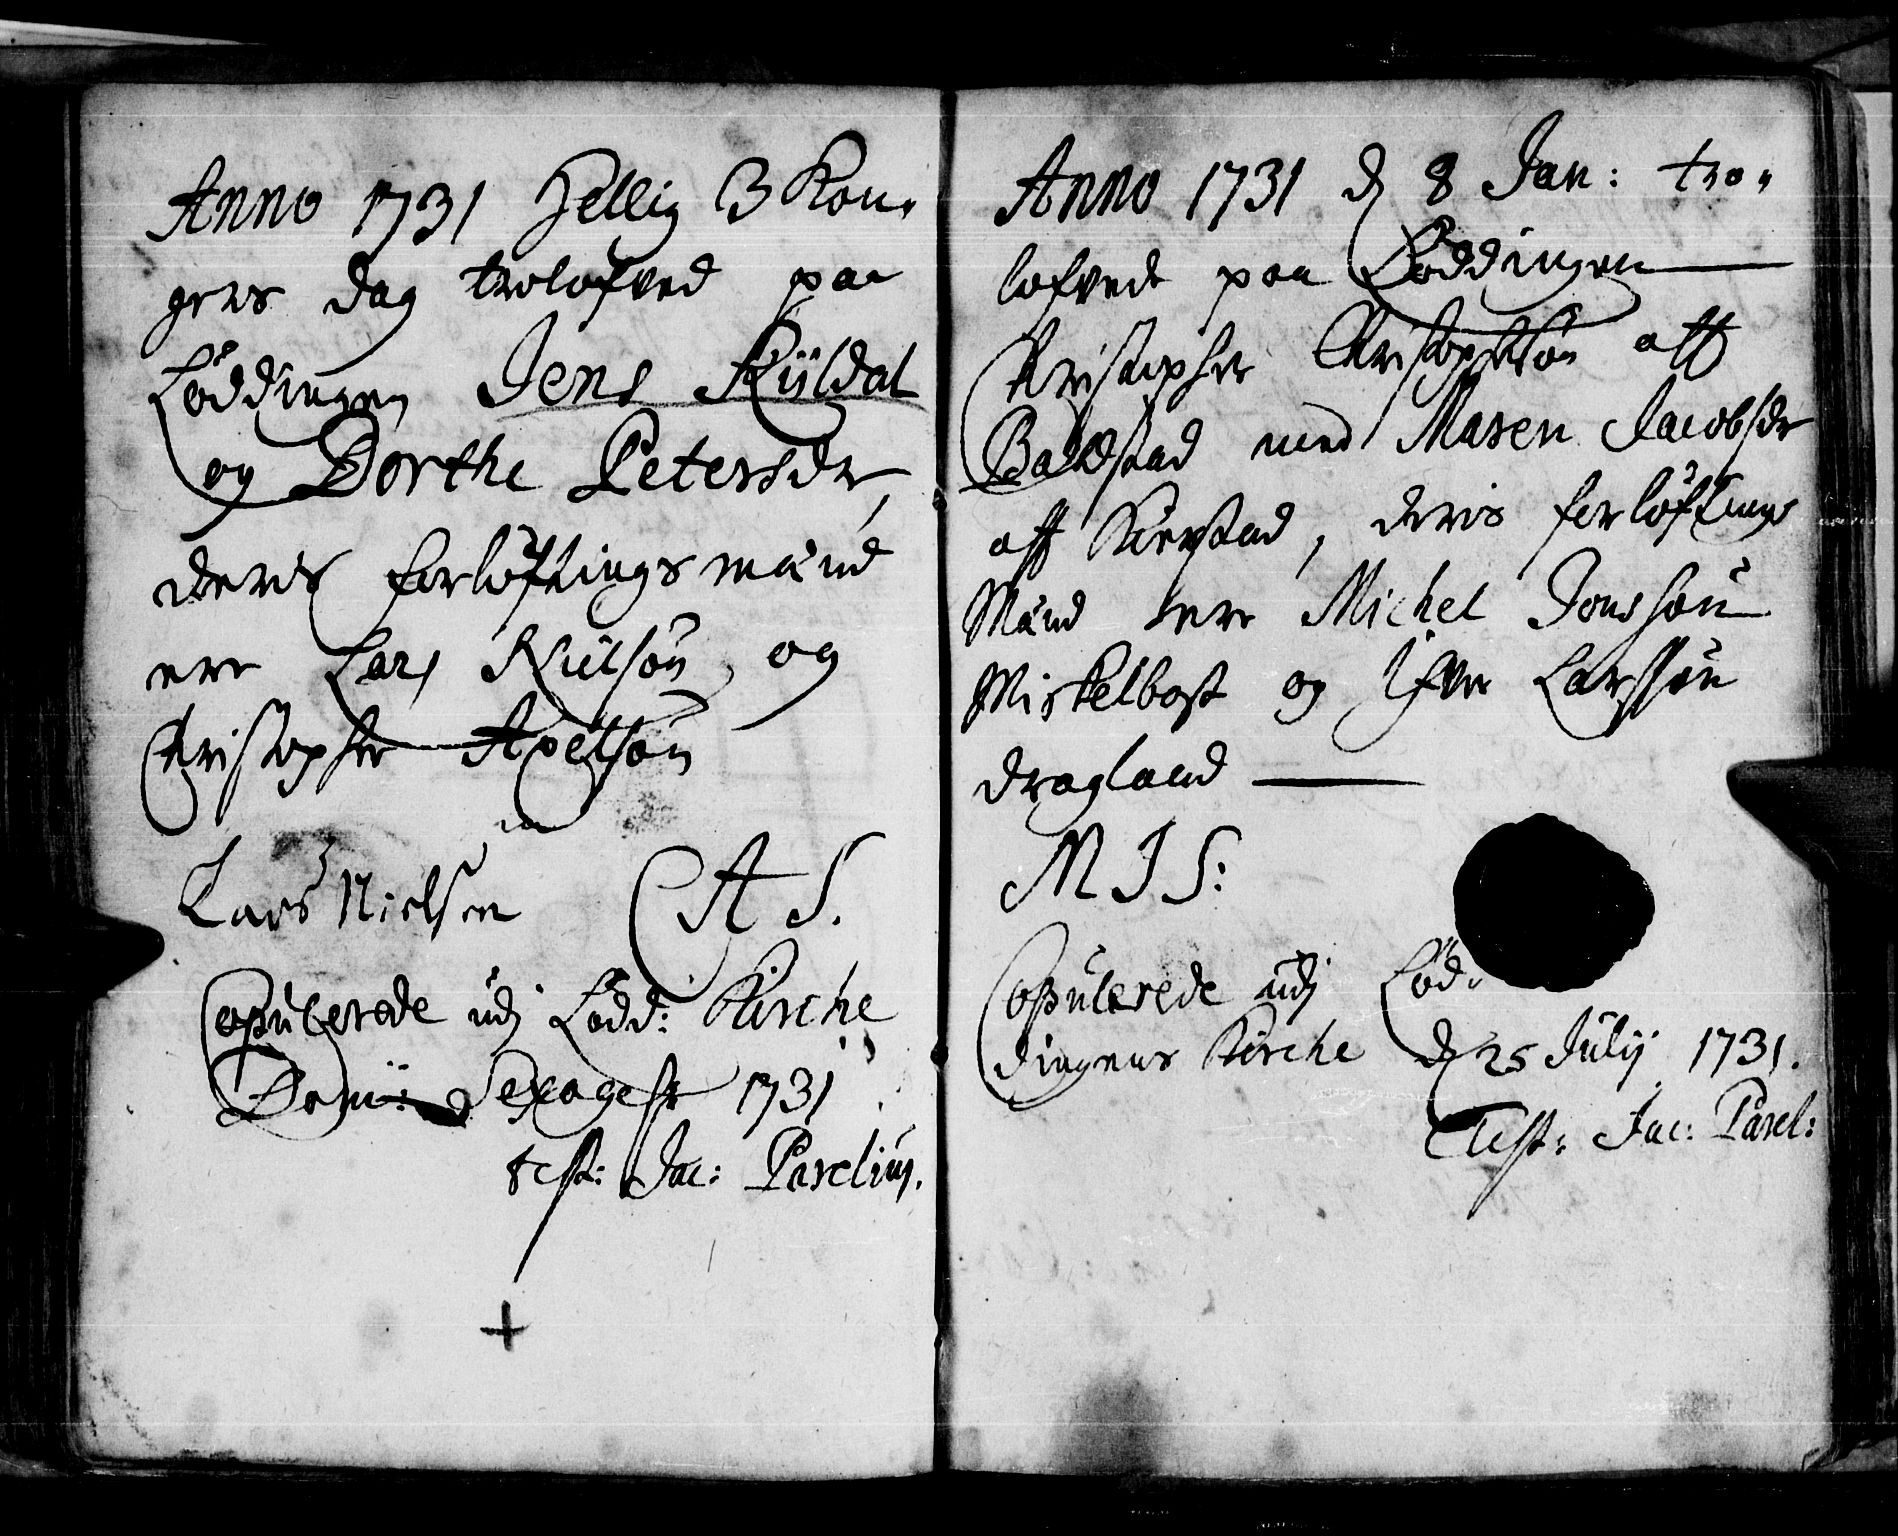 Anno 1731 Hellig 3 Kon-
gers dag trolofved paa
Løddingen Jens Kiildal
og Dorthe Petersdr,
deris forløftings mænd
ere Lars Nielsøn og
Christopher Axelsøn
Lars Nielsen CAS.
Copulerede udj Lødd: Kirche
Domii: Sexages: 1731
test: Jac: Parelius.
+
Anno 1731 d 8 Jan: tro-
lofvede paa Løddingen
Christopher Christophersøn aff
Balstad med Maren Jacobsdr
aff Kierstad, deris forløftings
Mænd ere Michel Jonssøn
Miskelbost og Ifver Larssøn
dragland
MJS:
Copulerede udj Lød-
dingens Kirche d 25 Julij 1731.
Test: Jac: Parel: